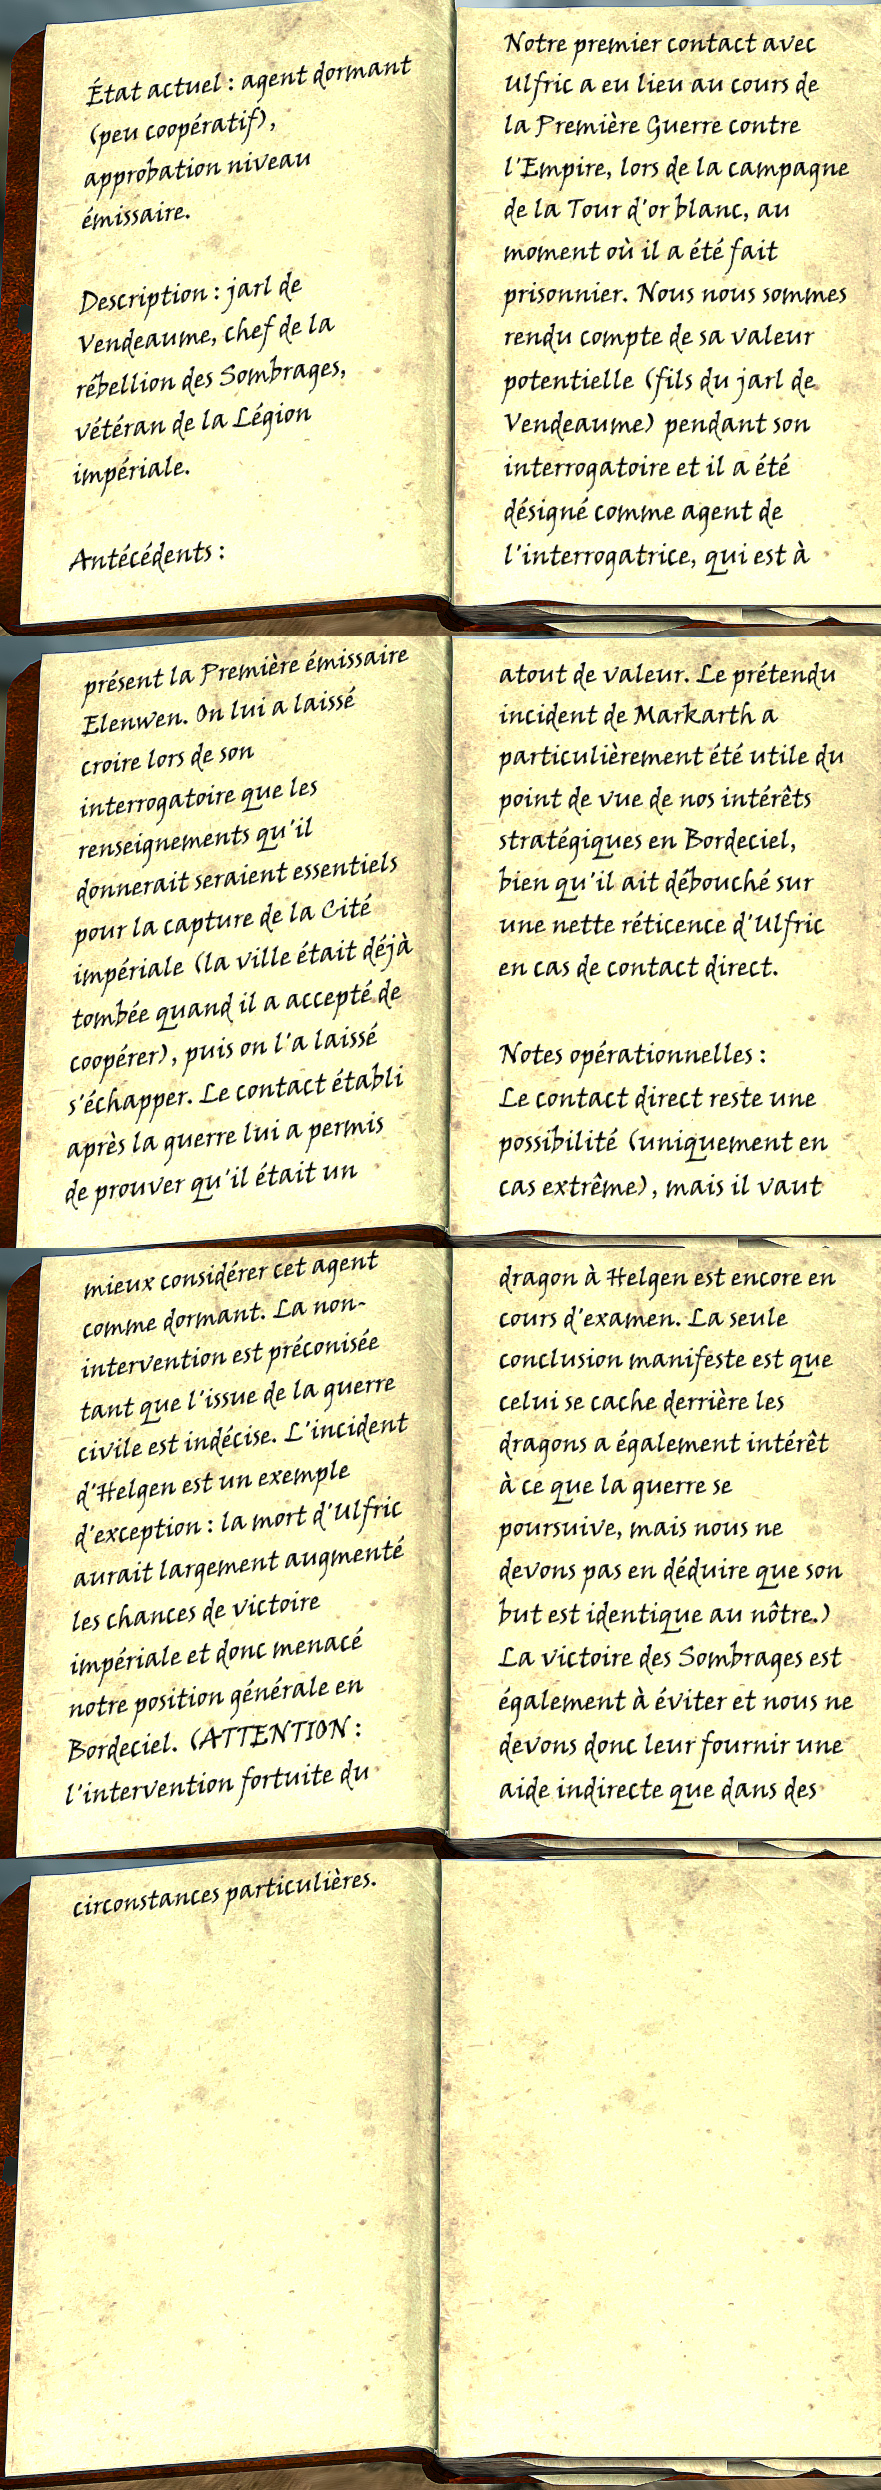 État actuel : agent dormant
(peu coopératif),
approbation niveau
émissaire.
Description : jarl de
Vendeaume, chef de la
rébellion des Sombrages,
vétéran de la Légion
impériale.
Antécédents :
Notre premier contact avec
Ulfric a eu lieu au cours de
la Première Guerre contre
l'Empire, lors de la campagne
de la Tour d'or blanc, au
moment où il a été fait
prisonnier. Nous nous sommes
rendu compte de sa valeur
potentielle (fils du jarl de
Vendeaume) pendant son
interrogatoire et il a été
désigné comme agent de
l'interrogatrice, qui est à
présent la Première émissaire
Elenwen. On lui a laissé
croire lors de son
interrogatoire que les
renseignements qu'il
donnerait seraient essentiels
pour la capture de la Cité
impériale (la ville était déjà
tombée quand il a accepté de
coopérer), puis on l'a laissé
s'échapper. Le contact établi
après la guerre lui a permis
de prouver qu'il était un
atout de valeur. Le prétendu
incident de Markarth a
particulièrement été utile du
point de vue de nos intérêts
stratégiques en Bordeciel,
bien qu'il ait débouché sur
une nette réticence d'Ulfric
en cas de contact direct.
Notes opérationnelles :
Le contact direct reste une
possibilité (uniquement en
cas extrême), mais il vaut
mieux considérer cet agent
comme dormant. La non-
intervention est préconisée
tant que l'issue de la guerre
civile est indécise. L'incident
d'Helgen est un exemple
d'exception : la mort d'Ulfric
aurait largement augmenté
les chances de victoire
impériale et donc menacé
notre position générale en
Bordeciel. (ATTENTION :
l'intervention fortuite du
dragon à Helgen est encore en
cours d'examen. La seule
conclusion manifeste est que
celui se cache derrière les
dragons a également intérêt
à ce que la guerre se
poursuive, mais nous ne
devons pas en déduire que son
but est identique au nôtre.)
La victoire des Sombrages est
également à éviter et nous ne
devons donc leur fournir une
aide indirecte que dans des
circonstances particulières.